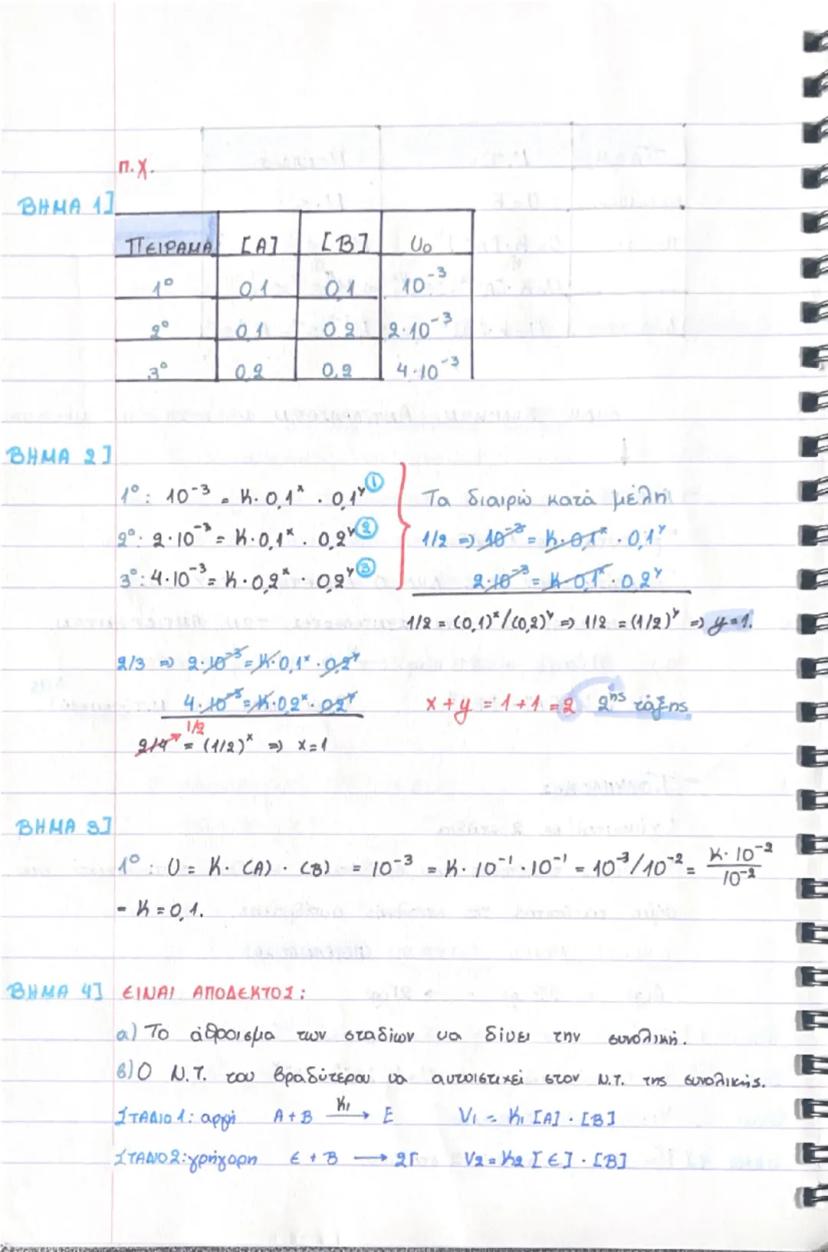 π.χ.
ΒΗΜΑ 1]
ΠΕΙΡΑΜΑ [Α] [Β] U₀
1° 0,1 0,1 10⁻³
2° 0,1 0,2 2·10⁻³
3° 0,2 0,2 4·10⁻³
ΒΗΜΑ 2]
1°: 10⁻³ = K·0,1ˣ · 0,1ʸ ①
2°: 2·10⁻³ = K·0,1ˣ · 0,2ʸ ②
3°: 4·10⁻³ = K·0,2ˣ · 0,2ʸ ③
Τα διαιρώ κατά μέλη
1/2 ⇒ 10⁻³ = K·0,1ˣ · 0,1ʸ
2·10⁻³ = K·0,1ˣ · 0,2ʸ
1/2 = (0,1)ˣ/(0,2)ʸ ⇒ 1/2 = (1/2)ʸ ⇒ y=1.
2/3 ⇒ 2·10⁻³ = K·0,1ˣ · 0,2ʸ
4·10⁻³ = K·0,2ˣ · 0,2ʸ
1/2
2/4 = (1/2)ˣ ⇒ x=1
x+y = 1+1 = 2 2ⁿˢ τάξης
ΒΗΜΑ 3]
1° : U = K· (A) · (B) = 10⁻³ = K· 10⁻¹ · 10⁻¹ = 10⁻³/10⁻² = K· 10⁻²/10⁻²
= K = 0,1.
ΒΗΜΑ 4] ΕΙΝΑΙ ΑΠΟΔΕΚΤΟΣ:
α) Το άθροισμα των σταδίων να δίνει την συνολική.
β) Ο Ν.Τ. του βραδύτερου να αντιστιχεί στον Ν.Τ. της συνολικής.
ΣΤΑΔΙΟ 1: αργή A + B K₁ → E V₁ = K₁ [A] · [B]
ΣΤΑΔΙΟ 2: γρήγορη E + B → 2Γ V₂ = K₂ [E] · [B]